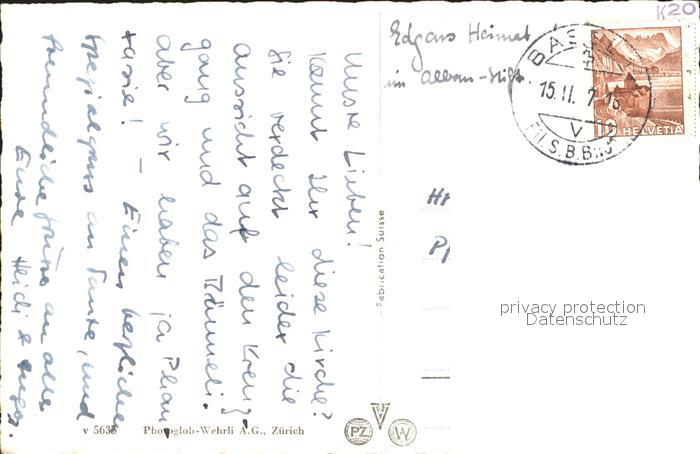 Edgars Heimat
im Alban-Stift.
Unsre Lieben!
Kennt Ihr diese Kirche?
Sie verdeckt leider die
Aussicht auf den Kreuz-
gang und das Bäumeli.
Aber wir haben ja Phan-
tasie! – Einen herzlichen
Spezialgruss an Tante, und
freundliche Grüsse an alles
Eure Heidi &
BASEL
15. II.
V
FIL. S.B.B.
10 HELVETIA
K20
Fabrication Suisse
privacy protection
Datenschutz
v 5635 Photoglob-Wehrli A.G., Zürich
PZ W